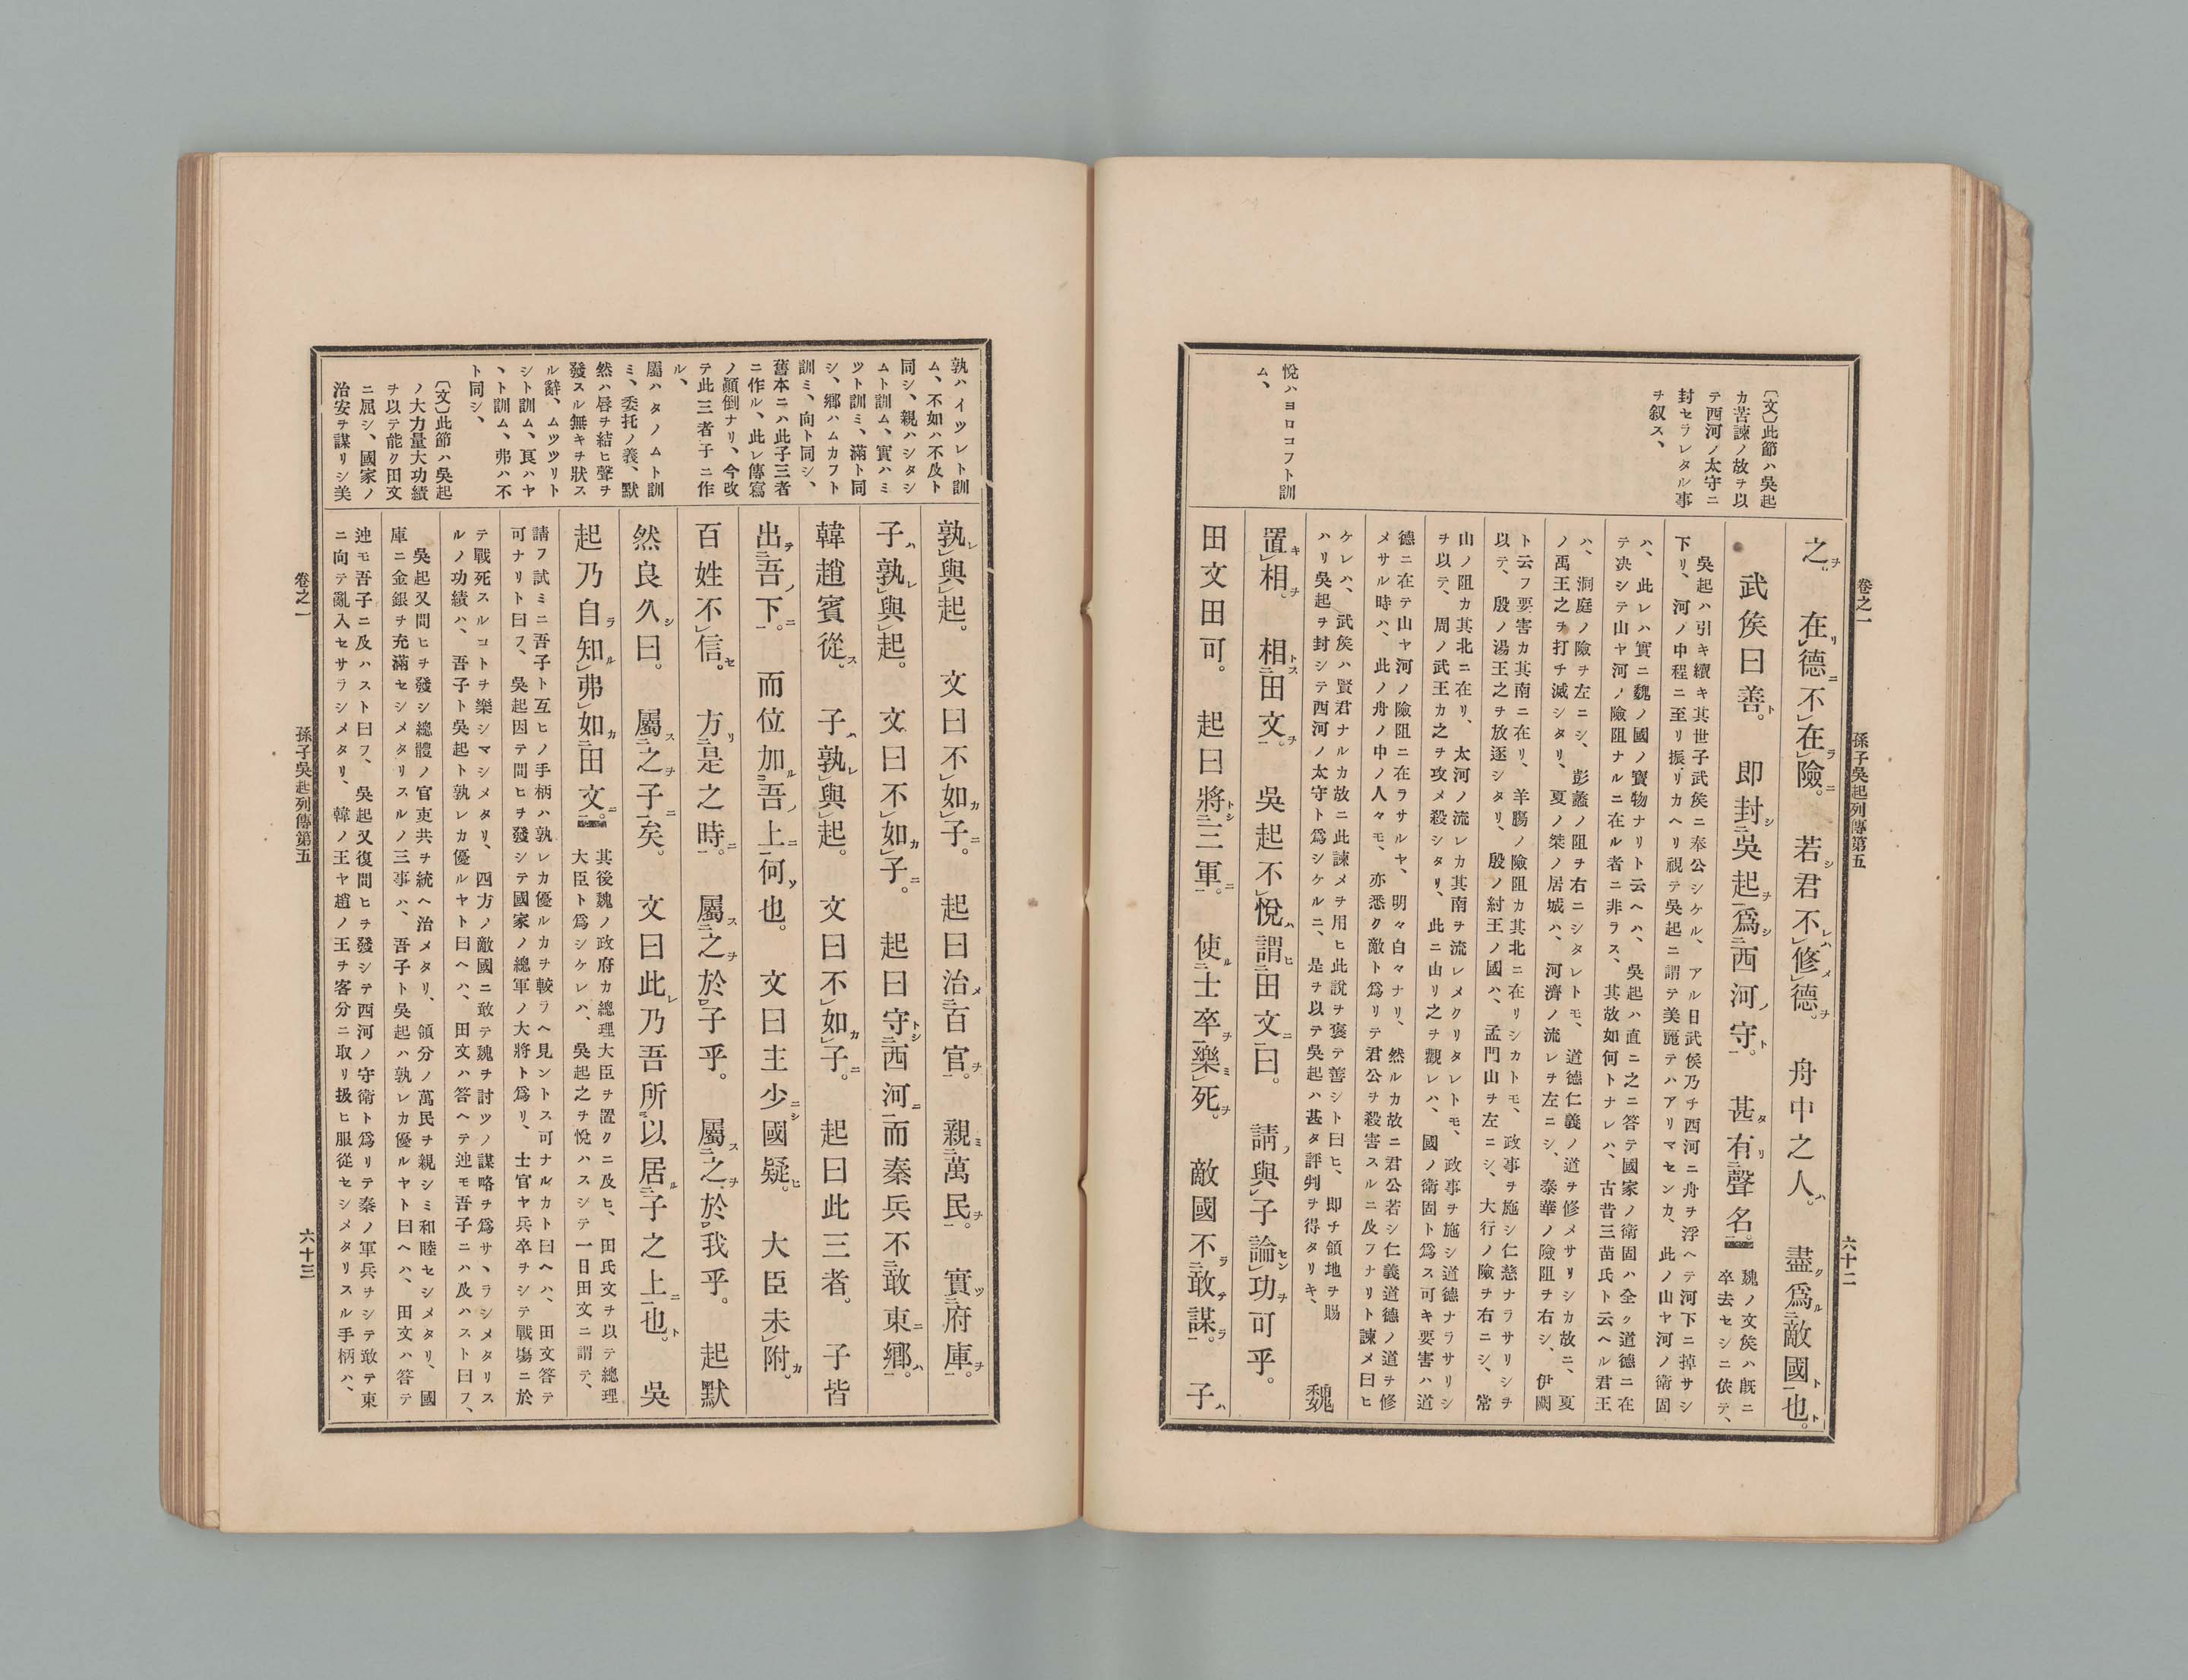 卷之一
孫子吳起列傳第五
六十二
〔文〕此節ハ吳起
カ苦諫ノ故ヲ以
テ西河ノ太守ニ
封セラレタル事
ヲ叙ス、
悅ハヨロコフト訓
ム、
之ヲ。在リ德ニ不在ラ險ニ。若シ君不レハ修メ德ヲ。舟中之人ハ。盡ク爲ル敵國ト也ト。
武侯曰善ト。即封シ吳起ヲ爲シ西河ノ守ト。甚タ有リ聲名。
魏ノ文侯ハ既ニ
卒去セシニ依テ、
吳起ハ引キ續キ其世子武侯ニ奉公シケル、アル日武侯乃チ西河ニ舟ヲ浮ヘテ河下ニ掉サシ
下リ、河ノ中程ニ至リ振リカヘリ視テ吳起ニ謂テ美麗テハアリマセンカ、此ノ山ヤ河ノ衛固
ハ、此レハ實ニ魏ノ國ノ寶物ナリト云ヘハ、吳起ハ直ニ之ニ答テ國家ノ衛固ハ全ク道德ニ在
テ决シテ山ヤ河ノ險阻ナルニ在ル者ニ非ラス、其故如何トナレハ、古昔三苗氏ト云ヘル君王
ハ、洞庭ノ險ヲ左ニシ、彭蠡ノ阻ヲ右ニシタレトモ、道德仁義ノ道ヲ修メサリシカ故ニ、夏
ノ禹王之ヲ打チ滅シタリ、夏ノ桀ノ居城ハ、河濟ノ流レヲ左ニシ、泰華ノ險阻ヲ右シ、伊闕
ト云フ要害カ其南ニ在リ、羊膓ノ險阻カ其北ニ在リシカトモ、政事ヲ施シ仁慈ナラサリシヲ
以テ、殷ノ湯王之ヲ放逐シタリ、殷ノ紂王ノ國ハ、孟門山ヲ左ニシ、大行ノ險ヲ右ニシ、常
山ノ阻カ其北ニ在リ、太河ノ流レカ其南ヲ流レメクリタレトモ、政事ヲ施シ道德ナラサリシ
ヲ以テ、周ノ武王カ之ヲ攻メ殺シタリ、此ニ山リ之ヲ觀レハ、國ノ衛固ト爲ス可キ要害ハ道
德ニ在テ山ヤ河ノ險阻ニ在ラサルヤ、明々白々ナリ、然ルカ故ニ君公若シ仁義道德ノ道ヲ修
メサル時ハ、此ノ舟ノ中ノ人々モ、亦悉ク敵ト爲リテ君公ヲ殺害スルニ及フナリト諫メ曰ヒ
ケレハ、武侯ハ賢君ナルカ故ニ此諫メヲ用ヒ此說ヲ褒テ善シト曰ヒ、即チ領地ヲ賜
ハリ吳起ヲ封シテ西河ノ太守ト爲シケルニ、是ヲ以テ吳起ハ甚タ評判ヲ得タリキ、
魏
置キ相ヲ。相トス田文ヲ。吳起不悅ハ謂ヒ田文ニ曰。請フ與子論セン功ヲ可乎。
田文田可。起曰將トシ三軍ニ。使ル士卒ヲ樂ミ死ヲ。敵國不ラ敢テ謀ラ。子ハ
孰ハイツレト訓
ム、不如ハ不及ト
同シ、親ハシタシ
ムト訓ム、實ハミ
ツト訓ミ、滿ト同
シ、鄕ハムカフト
訓ミ、向ト同シ、
舊本ニハ此子三者
ニ作ル、此レ傳寫
ノ顚倒ナリ、今改
テ此三者子ニ作
ル、
屬ハタノムト訓
ミ、委托ノ義、默
然ハ唇ヲ結ヒ聲ヲ
發スル無キヲ狀ス
ル辭、ムツツリト
シト訓ム、良ハヤ
ヽト訓ム、弗ハ不
ト同シ、
〔文〕此節ハ吳起
ノ大力量大功績
ヲ以テ能ク田文
ニ屈シ、國家ノ
治安ヲ謀リシ美
孰レ與起。文曰不如カ子ニ。起曰治メ百官ヲ。親ミ萬民ヲ。實ツ府庫ヲ。
子ハ孰レ與起。文曰不如カ子ニ。起曰守トシ西河ニ而秦兵不敢東ニ鄕ハ。
韓趙賓從ス。子ハ孰レ與起。文曰不如カ子ニ。起曰此三者。子皆
出テ吾ノ下ニ。而位加ル吾ノ上ニ何ソ也。文曰主少ニシ國疑ヒ。大臣未附カ。
百姓不信セ。方リ是之時ニ。屬ス之ヲ於子乎。屬ス之ヲ於我乎。起默
然良久シ曰。屬ス之ヲ子ニ矣。文曰此レ乃吾所以居ル子之上ニ也ト。吳
起乃自ラ知ル弗如カ田文ニ。
其後魏ノ政府カ總理大臣ヲ置クニ及ヒ、田氏文ヲ以テ總理
大臣ト爲シケレハ、吳起之ヲ悅ハスシテ一日田文ニ謂テ、
請フ試ミニ吾子ト互ヒノ手柄ハ孰レカ優ルカヲ較ラヘ見ントス可ナルカト曰ヘハ、田文答テ
可ナリト曰フ、吳起因テ問ヒヲ發シテ國家ノ總軍ノ大將ト爲リ、士官ヤ兵卒ヲシテ戰塲ニ於
テ戰死スルコトヲ樂シマシメタリ、四方ノ敵國ニ敢テ魏ヲ討ツノ謀略ヲ爲サヽラシメタリス
ルノ功績ハ、吾子ト吳起ト孰レカ優ルヤト曰ヘハ、田文ハ答ヘテ迚モ吾子ニハ及ハスト曰フ、
吳起又問ヒヲ發シ總體ノ官吏共ヲ統ヘ治メタリ、領分ノ萬民ヲ親シミ和睦セシメタリ、國
庫ニ金銀ヲ充滿セシメタリスルノ三事ハ、吾子ト吳起ハ孰レカ優ルヤト曰ヘハ、田文ハ答テ
迚モ吾子ニ及ハスト曰フ、吳起又復問ヒヲ發シテ西河ノ守衛ト爲リテ秦ノ軍兵ヲシテ敢テ東
ニ向テ亂入セサラシメタリ、韓ノ王ヤ趙ノ王ヲ客分ニ取リ扱ヒ服從セシメタリスル手柄ハ、
卷之一
孫子吳起列傳第五
六十三